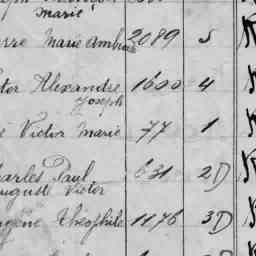 Marie
Marie Ambroise 2089 5
Alexandre 1600 4
Joseph
Victor Marie 77 1
Charles Paul 631 2D
August Victor
Eugène Théophile 1176 3D